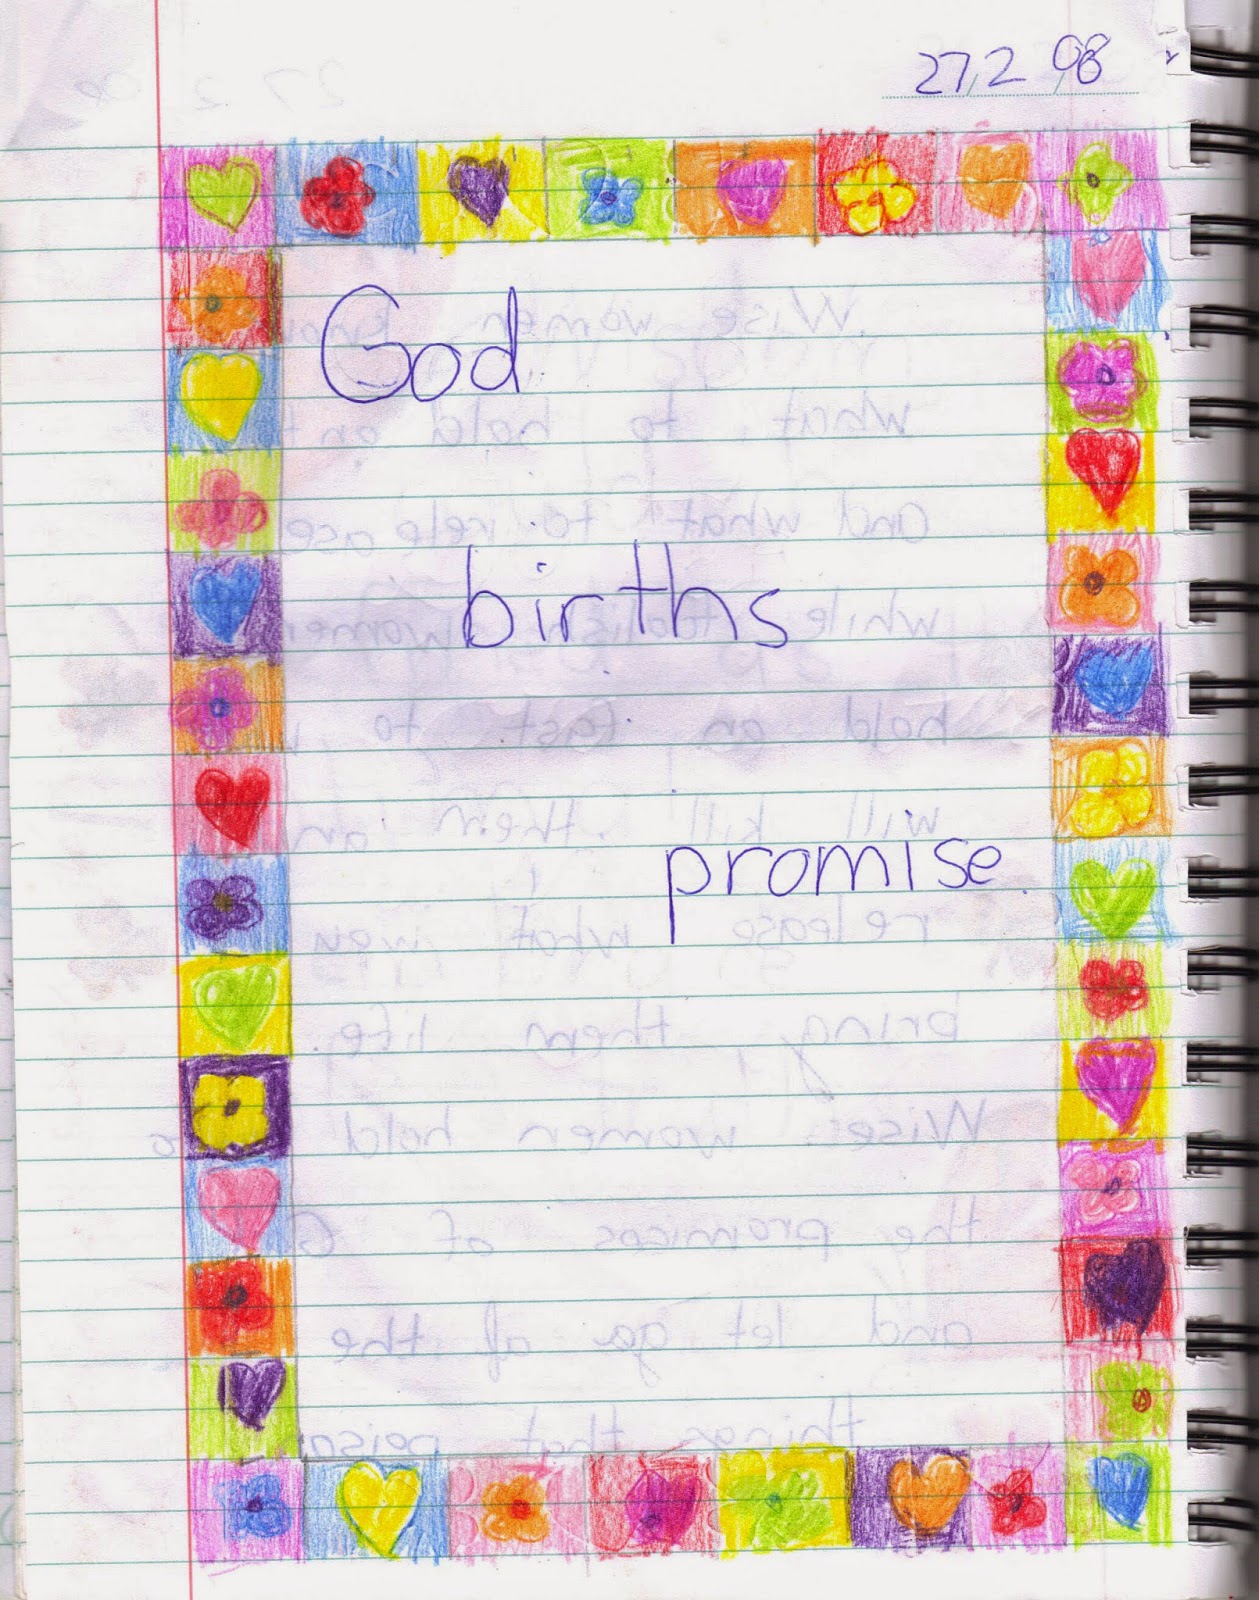 27/2/98
God
births
promise.